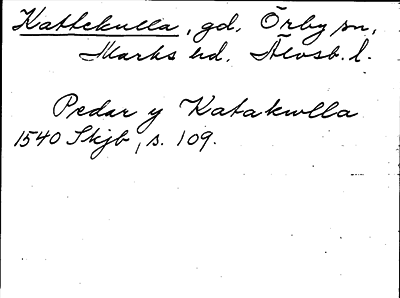 Kattekulla, gd. Örby sn,
Marks hd. Älvsb. l.
Pedar y Katakwlla
1540 Skjb, s. 109.